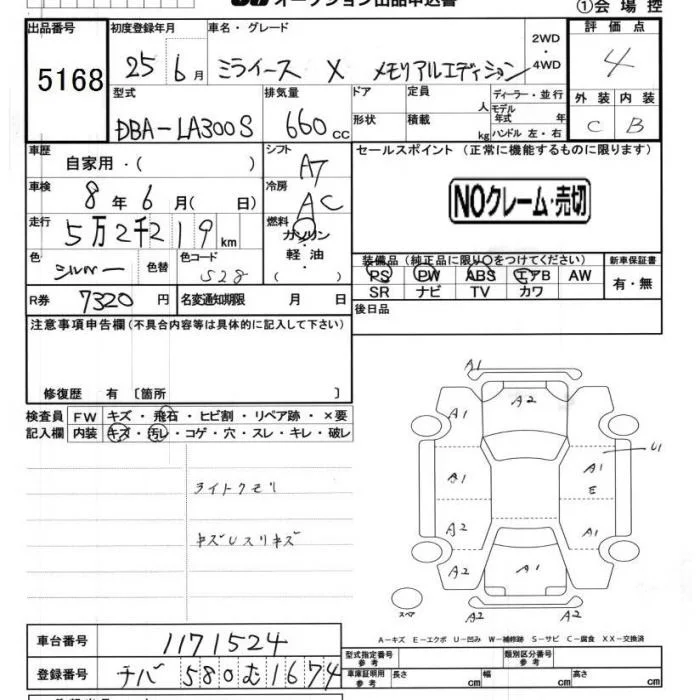 オークション出品申込書
①会場控
出品番号 初度登録年月 車名・グレード 評価点
5168 25年6月 ミライース X メモリアルエディション 2WD・4WD 4
型式 排気量 ドア 定員 人 ディーラー・並行 外装 内装
DBA-LA300S 660cc 形状 積載 kg モデル年式 年 ハンドル 左・右 C B
車歴 自家用・( ) シフト AT セールスポイント (正常に機能するものに限ります)
車検 8年6月( 日) 冷房 AC NOクレーム・売切
走行 5万2千219km 燃料 ガソリン・軽油・( )
色 シルバー 色替 色コード S28
装備品 (純正品に限り○をつけてください) 新車保証書
PS PW ABS エアB AW 有・無
SR ナビ TV カワ
R券 7320円 名変通知期限 月 日 後日品
注意事項申告欄(不具合内容等は具体的に記入して下さい)
修復歴 有 〔箇所 〕
検査員記入欄 FW キズ・飛石・ヒビ割・リペア跡・×要
内装 キズ・汚レ・コゲ・穴・スレ・キレ・破レ
ライトクモリ
キズUスリキズ
A1
A1 A2 A1
A1 A1 U1
E
A2 A1
A2 A1 A2
スペア A2
A-キズ E-エクボ U-凹み W-補修跡 S-サビ C-腐食 XX-交換済
車台番号 1171524
型式指定番号 参考 類別区分番号 参考
登録番号 チバ 580 む 1674
車庫証明用 参考 長さ cm 幅 cm 高さ cm